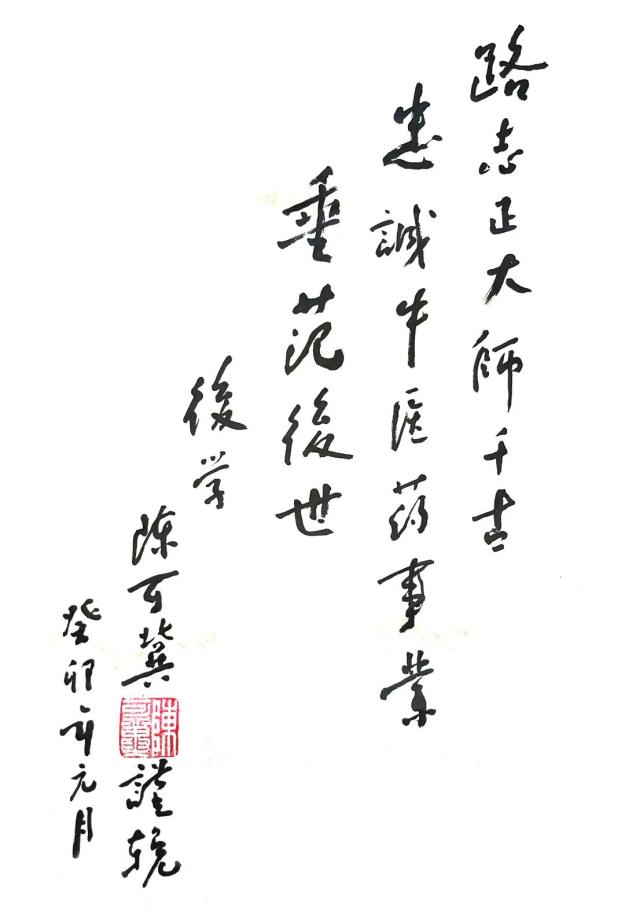 路志正大师千古
忠誠中医药事業
垂范後世
後学
陳可冀
謹挽
癸卯年元月